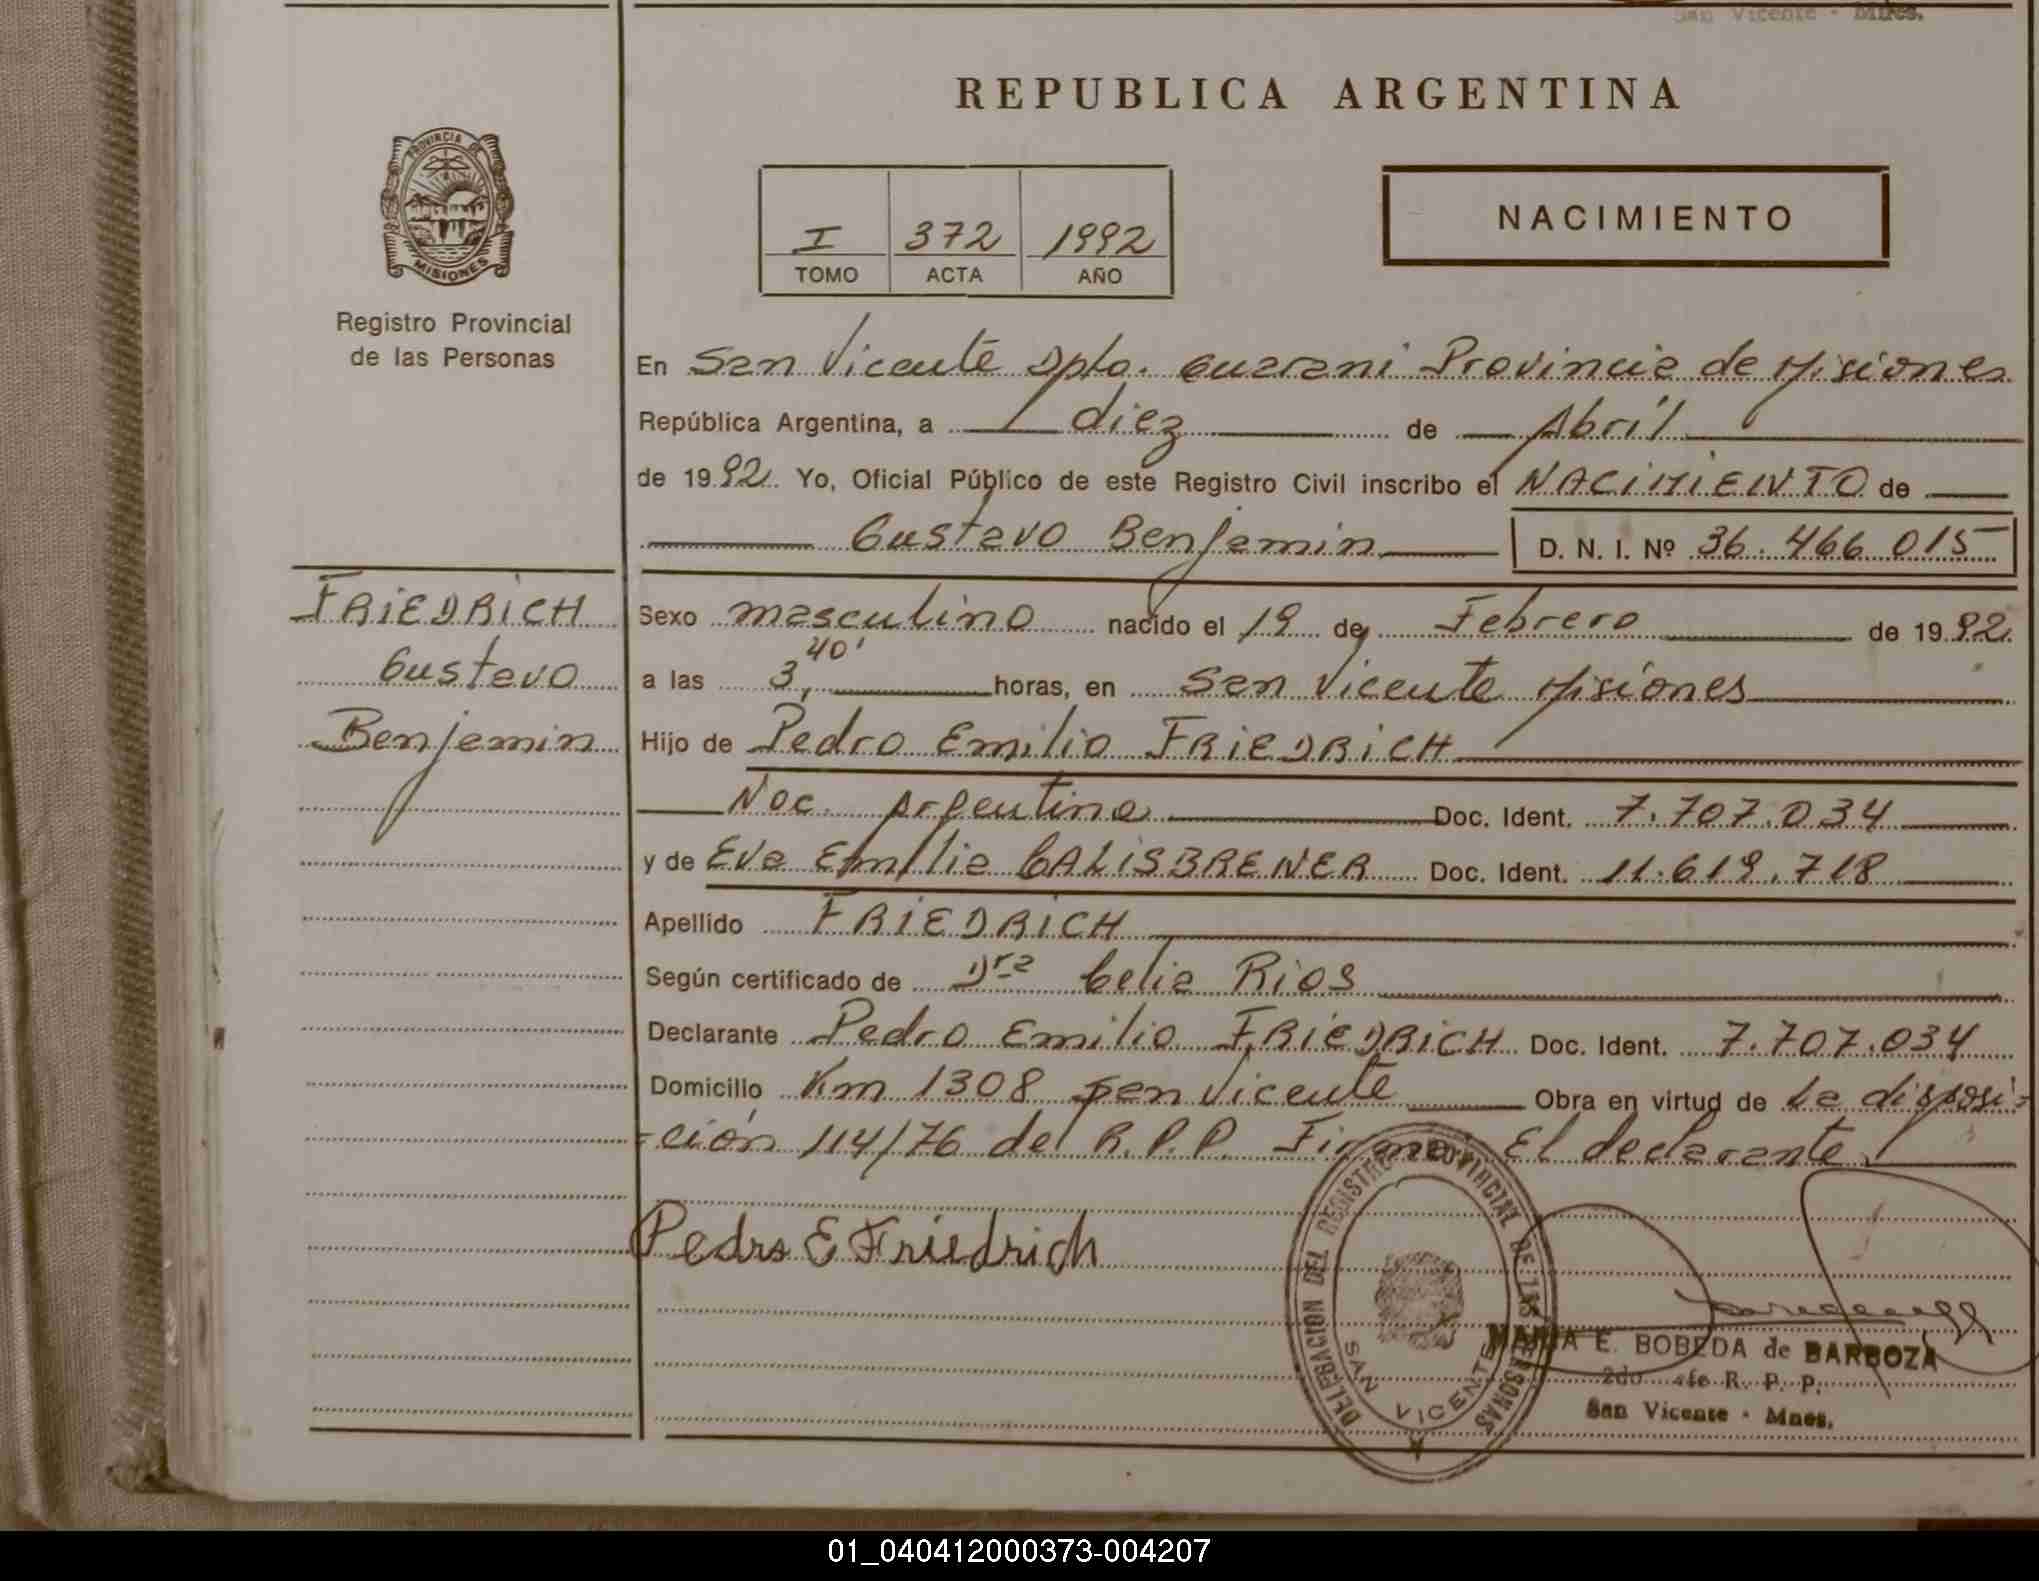 San Vicente - Mnes.
REPUBLICA ARGENTINA
PROVINCIA DE
MISIONES
Registro Provincial
de las Personas
I 372 1992
TOMO ACTA AÑO
NACIMIENTO
En San Vicente Dpto. Guarani Provincia de Misiones
República Argentina, a diez de Abril
de 1992. Yo, Oficial Público de este Registro Civil inscribo el NACIMIENTO de
Gustavo Benjamin D. N. I. Nº 36.466.015
FRIEDRICH
Gustavo
Benjamin
Sexo masculino nacido el 19 de Febrero de 1992.
a las 3, 40' horas, en San Vicente Misiones
Hijo de Pedro Emilio FRIEDRICH
Nac. Argentina Doc. Ident. 7.707.034
y de Eva Emilia GALISBRENER Doc. Ident. 11.619.718
Apellido FRIEDRICH
Según certificado de Dra Celia Rios
Declarante Pedro Emilio FRIEDRICH Doc. Ident. 7.707.034
Domicilio Km 1308 San Vicente Obra en virtud de la disposi-
-ción 114/76 del R.P.P. Firma: El declarante
Pedro E Friedrich
DELEGACION DEL REGISTRO PROVINCIAL DE LAS PERSONAS
SAN VICENTE
MARIA E. BOBEDA de BARBOZA
2do. Jefe R. P. P.
San Vicente - Mnes.
01_040412000373-004207